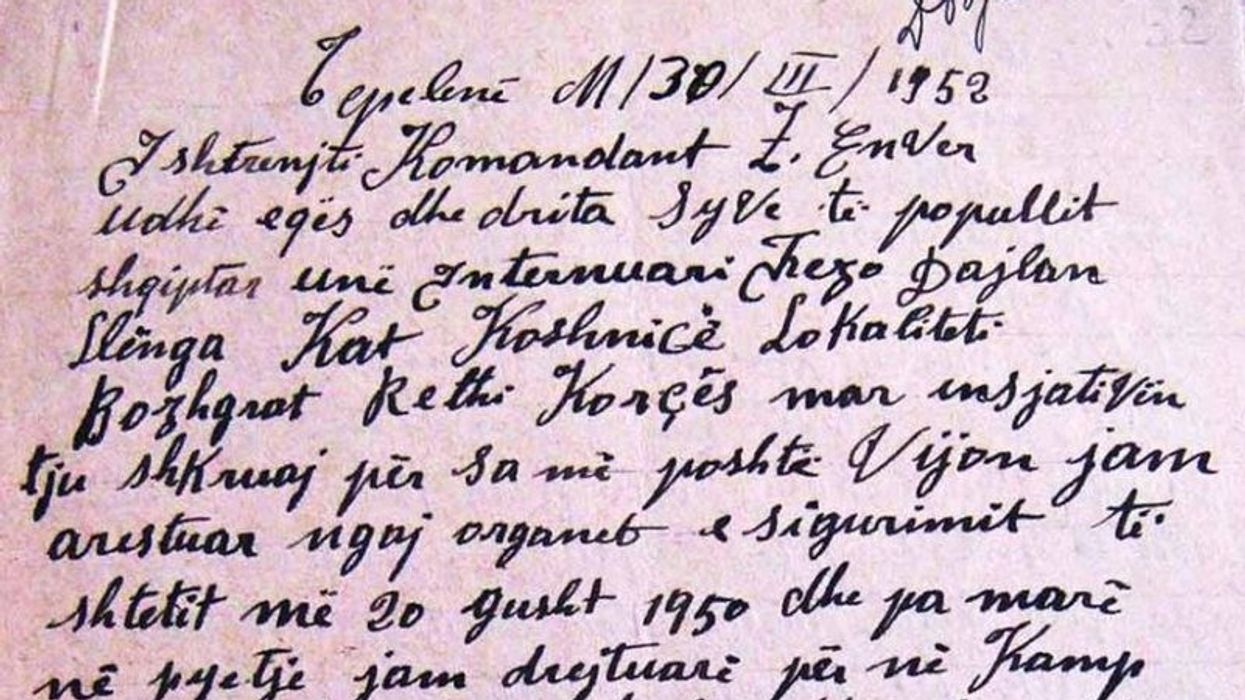 32
Tepelenë M/30/III/1952
I shtrenjti Komandant Z. Enver
udhë eqës dhe drita syve të popullit
shqiptar unë Internuari Dajlan
Llënga Kat Koshnicë Lokaliteti
Bozhgrat Rethi Korçës mar insjativën
tju shkruaj për sa më poshtë Vijon jam
arestuar ngaj organet e sigurimit të
shtetit më 20 gusht 1950 dhe pa marë
në pyetje jam drejtuarë për në Kamp